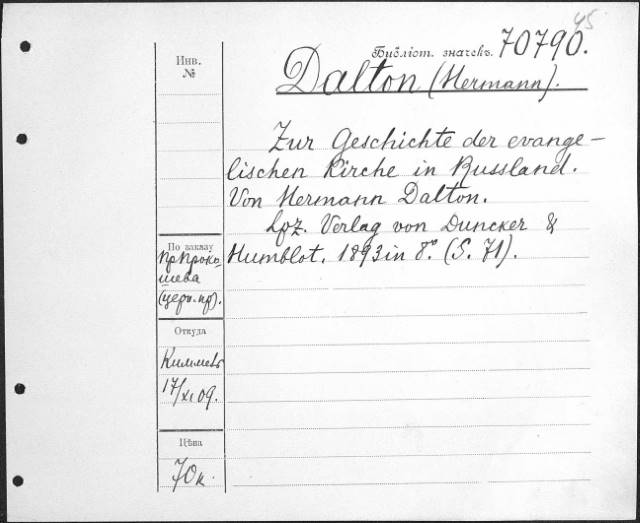 45
Библіот. значекъ. 70790.
Инв.
№
Dalton (Hermann).
Zur Geschichte der evange-
lischen Kirche in Russland.
Von Hermann Dalton.
Lpz. Verlag von Duncker &
Humblot. 1893 in 8º. (S. 71).
По заказу
Пр Проко-
шева
(церк. пр).
Откуда
Киммель
17/XI 09.
Цѣна
70 к.